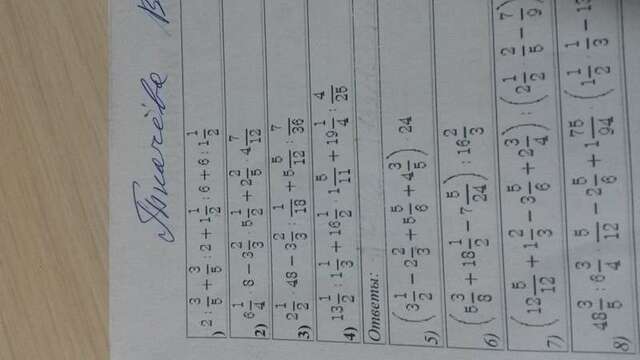 Ткачёва В
) 2 : 3/5 + 3/5 : 2 + 1 1/2 : 6 + 6 : 1 1/2
2) 6 1/4 · 8 - 3 2/3 · 5 1/2 + 2 2/5 · 4 7/12
3) 2 1/2 · 48 - 3 2/3 : 1/18 + 5 5/12 : 7/36
4) 13 1/2 : 1 1/3 + 16 1/2 · 1 5/11 + 19 1/4 : 4/25
Ответы:
5) (3 1/2 - 2 2/3 + 5 5/6 + 4 3/5) 24
6) (5 3/8 + 18 1/2 - 7 5/24) : 16 2/3
7) (12 5/12 + 1 2/3 - 3 5/6 + 2 3/4) : (2 1/2 2/5 - 7/9)
8) 48 3/5 : 6 3/4 5/12 - 2 5/6 + 1 75/94 · (1 1/2 · 1/3 - 13